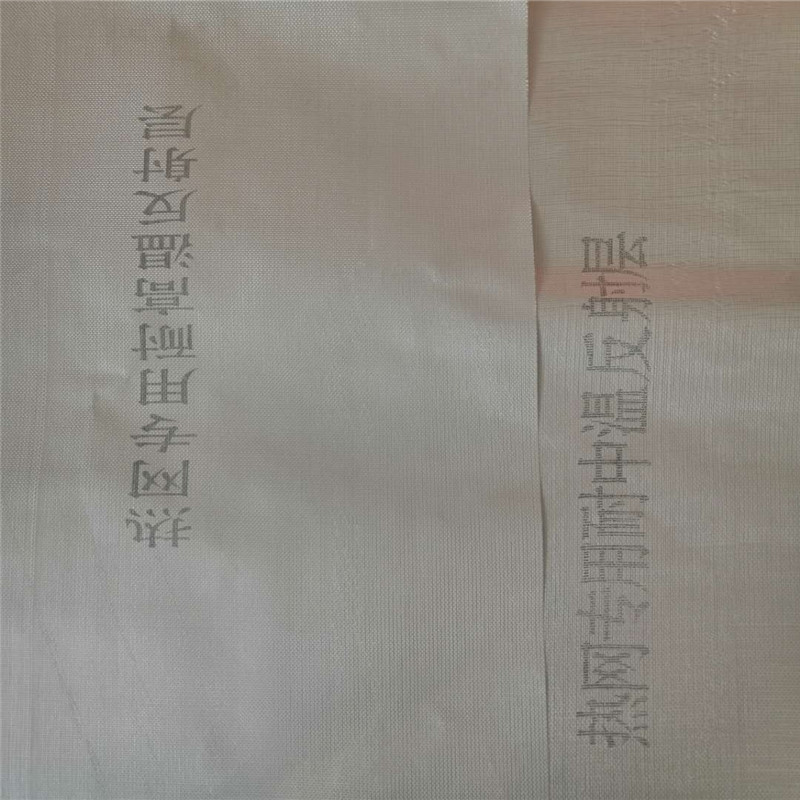 热网专用耐高温反射层
热网专用耐中温反射层